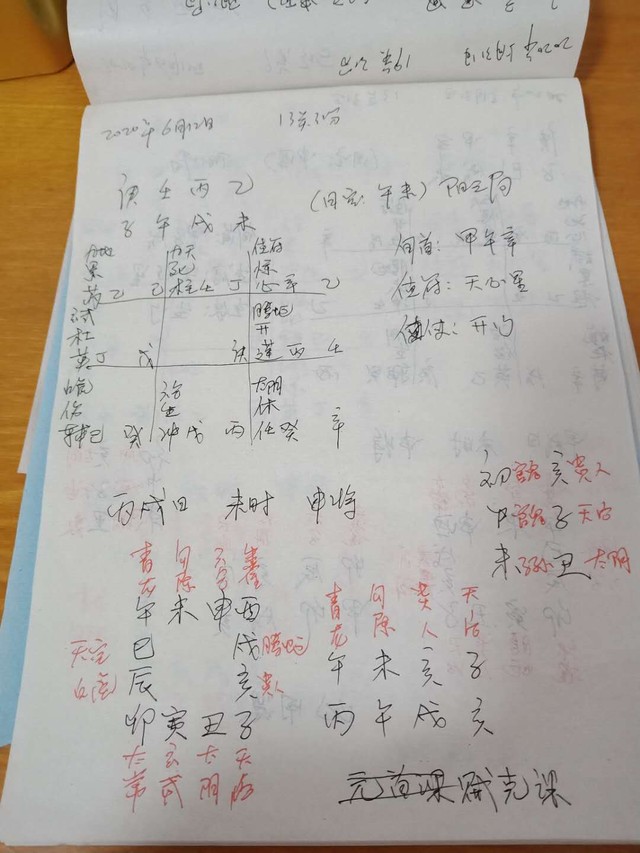 2020年6月12日 13点31分
庚 壬 丙 乙 (旬空:午未) 阳三局
子 午 戌 未
旬首:甲午辛
值符:天心星
值使:开门
九地 九天 值符
景 死 惊
芮 乙 己 柱 壬 丁 心 辛 乙
杜 腾蛇
英 丁 戊 庚 开
蓬 丙 壬
白虎 六合 太阴
伤 生 休
辅 己 癸 冲 戊 丙 任 癸 辛
丙戌日 未时 申将
初 官鬼 亥 贵人
中 官鬼 子 天后
末 子孙 丑 太阴
青龙 勾陈 六合 朱雀
午 未 申 酉
天空 巳 戌 腾蛇
白虎 辰 亥 贵人
卯 寅 丑 子
太常 玄武 太阴 天后
青龙 勾陈 贵人 天后
午 未 亥 子
丙 午 戌 亥
元首课 贼克课